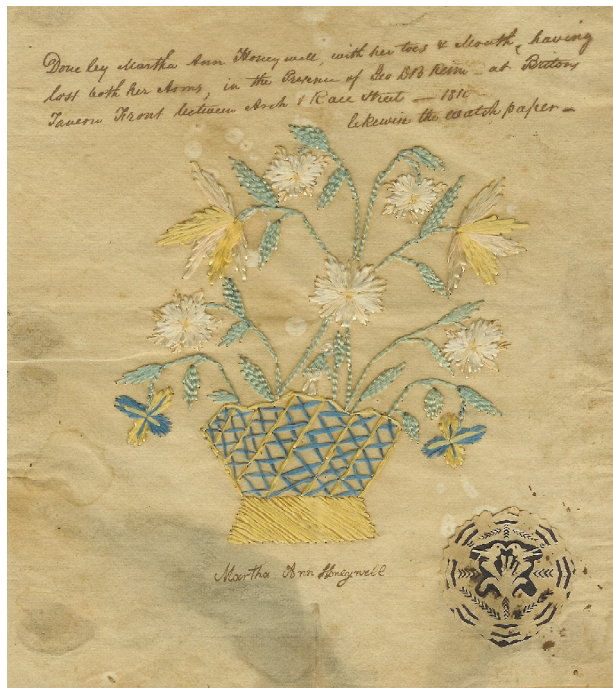 Done by Martha Ann Honeywell, with her toes & Mouth, having
lost both her Arms, in the Presence of Geo DB Keim - at
Tavern Front between Arch & Race Street — 1810
likewise the watch paper -
Martha Ann Honeywell